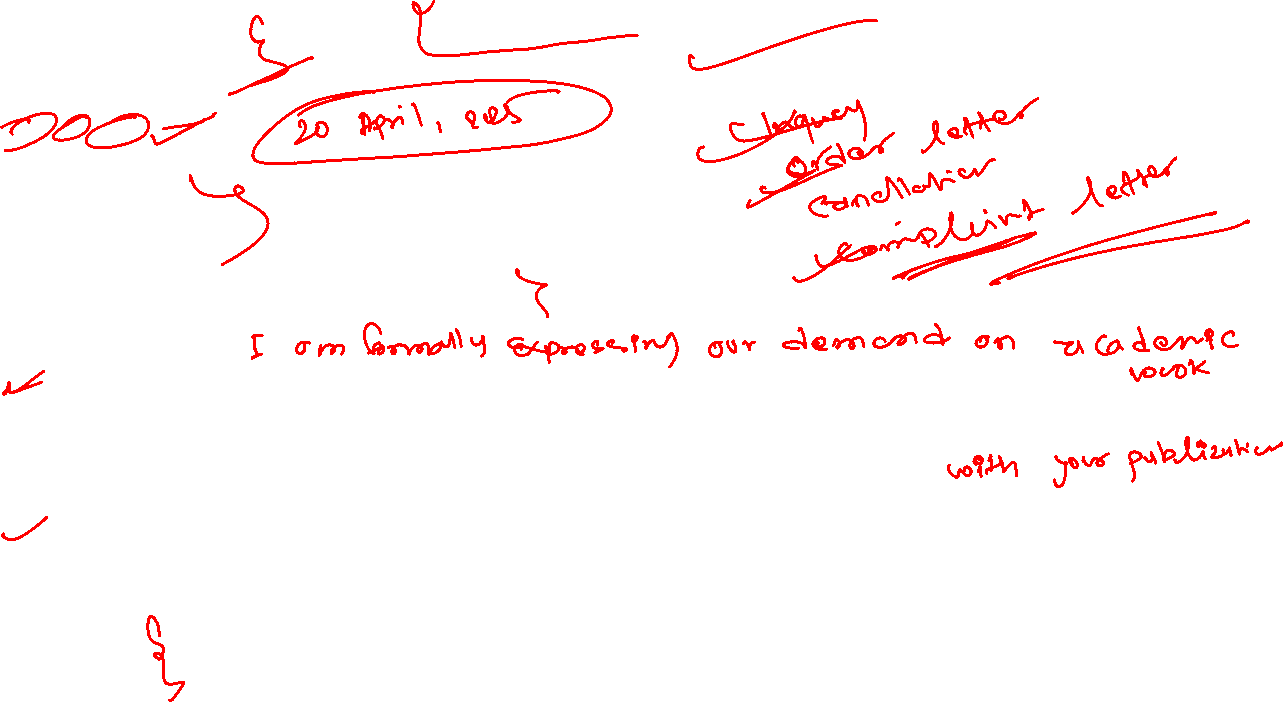 20 April, 2025
Inquery
order letter
cancllation
complaint letter
I am formally expressing our demand on academic
work
with your publication